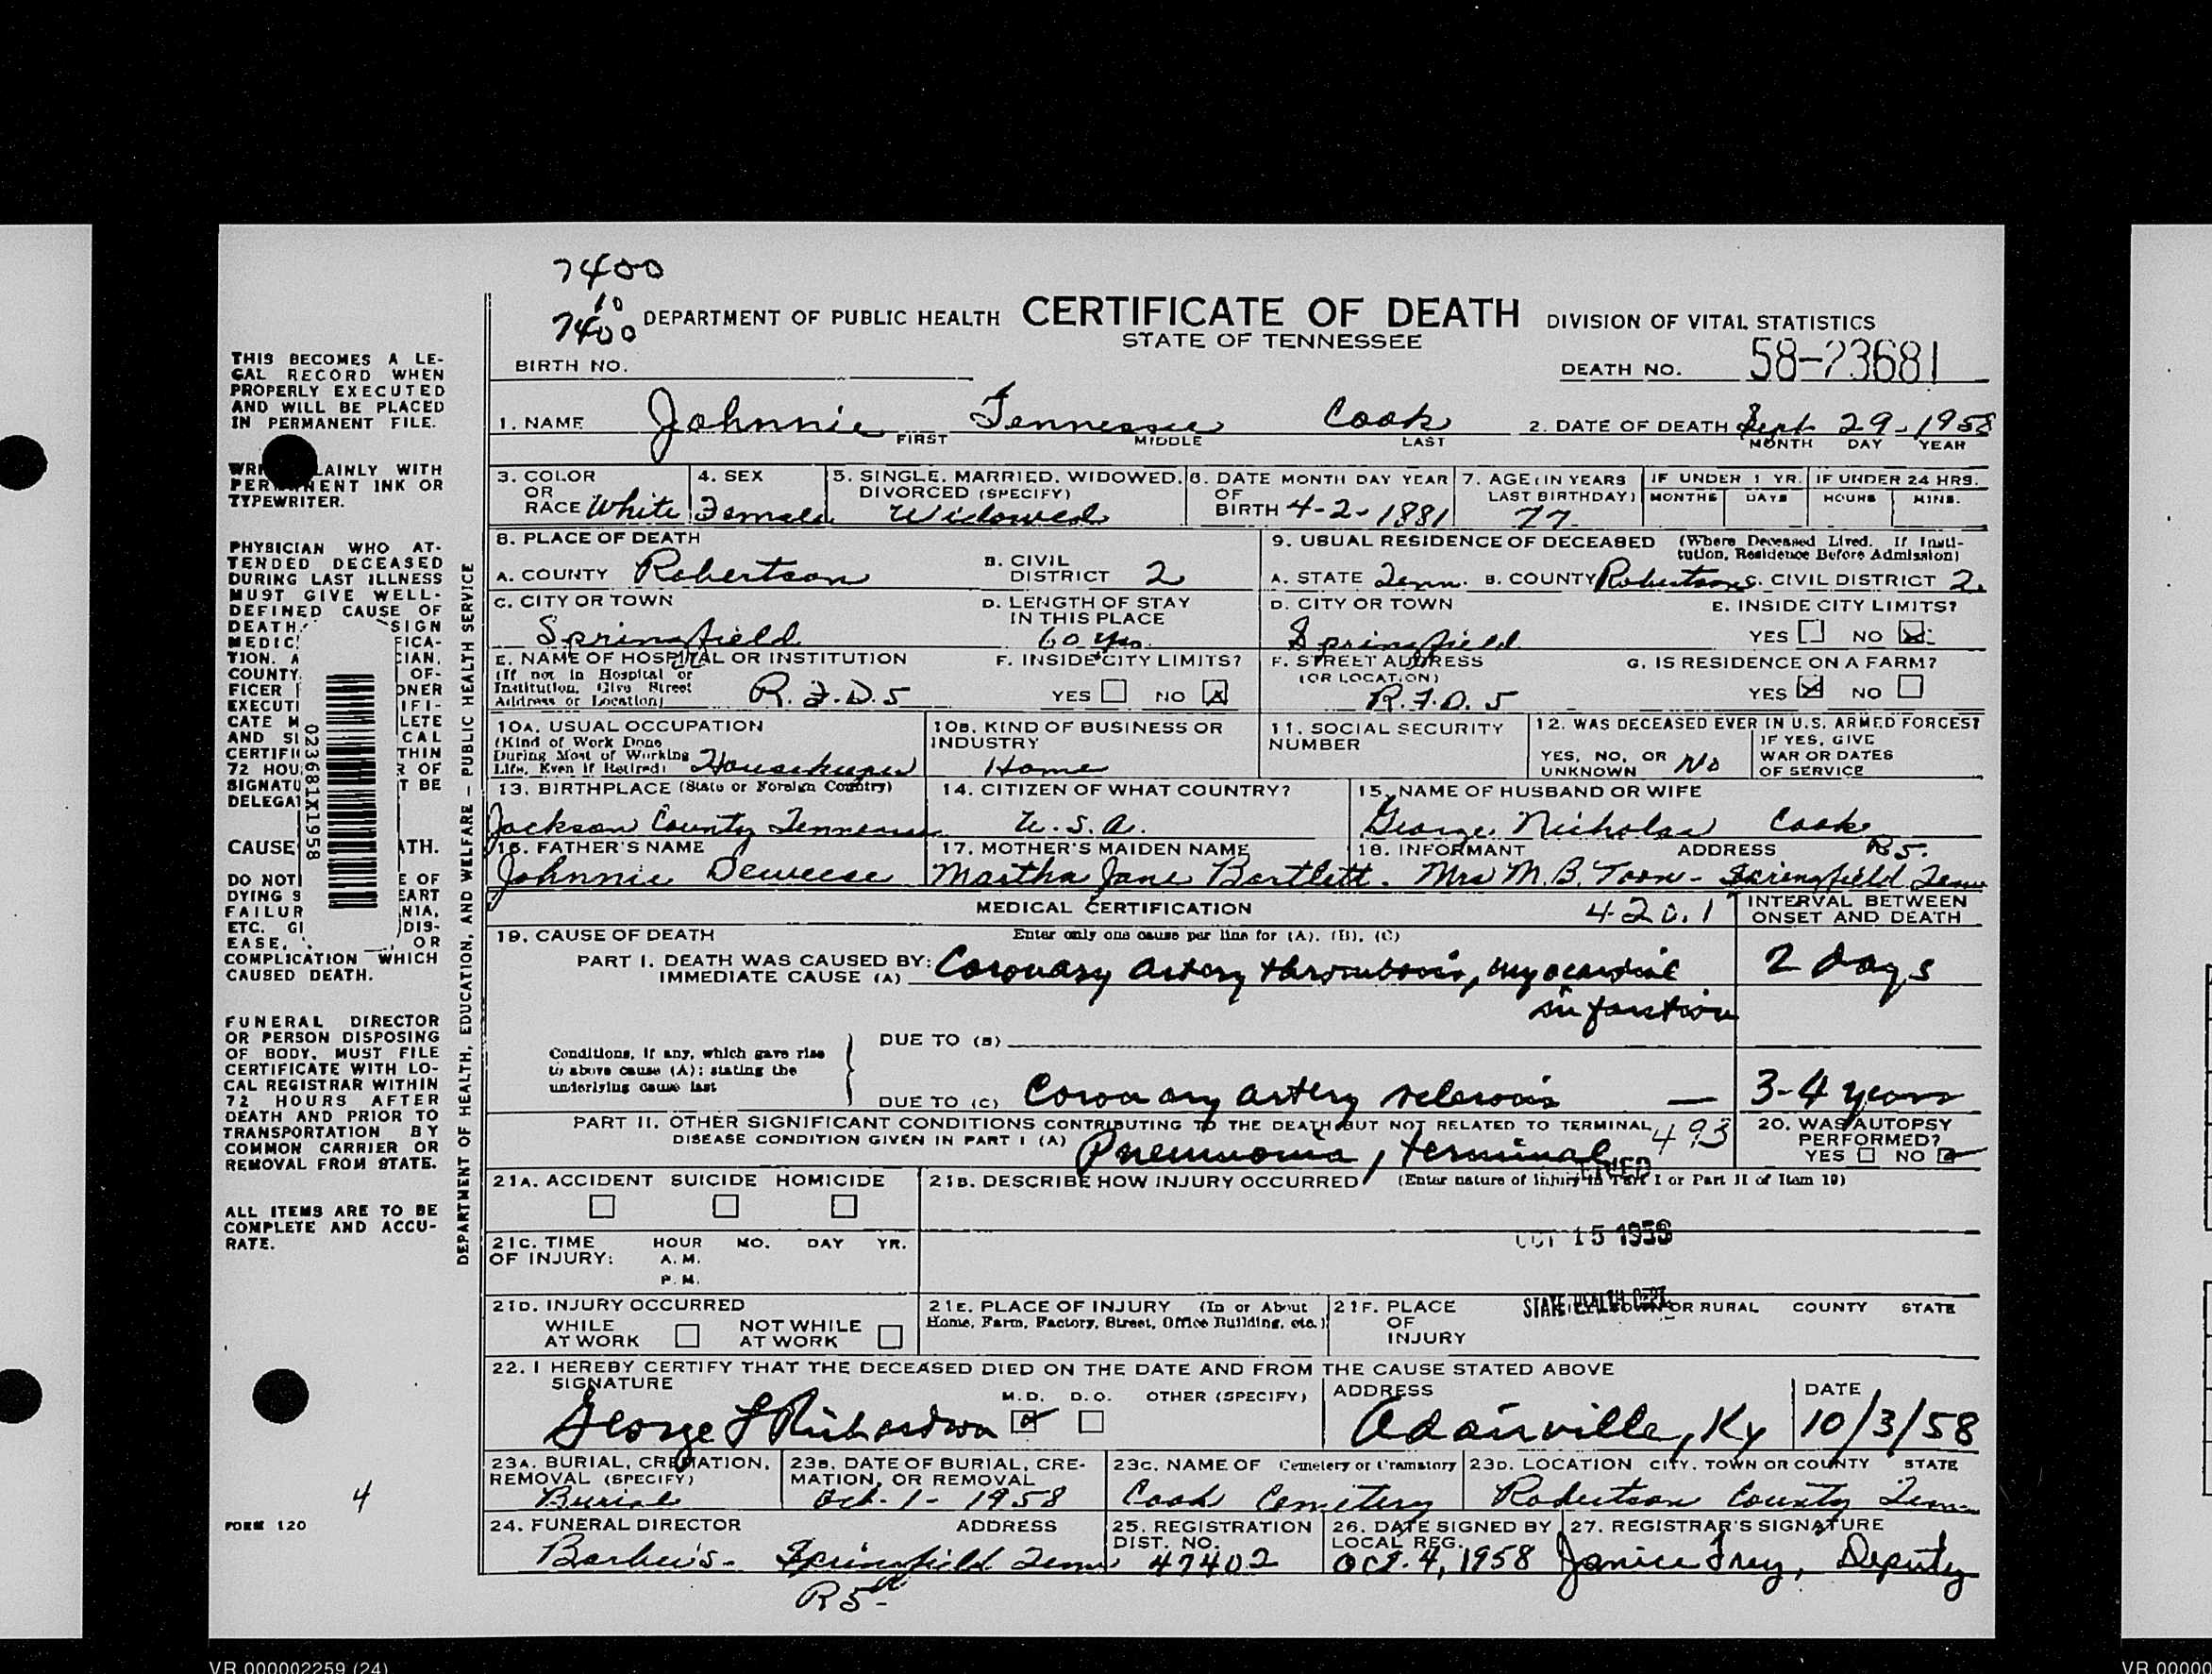 7400
10
7400
DEPARTMENT OF PUBLIC HEALTH CERTIFICATE OF DEATH DIVISION OF VITAL STATISTICS
STATE OF TENNESSEE
BIRTH NO. DEATH NO. 58-23681
1. NAME Johnnie Tennessee Cook 2. DATE OF DEATH Sept 29-1958
FIRST MIDDLE LAST MONTH DAY YEAR
3. COLOR OR RACE White
4. SEX Female
5. SINGLE, MARRIED, WIDOWED, DIVORCED (SPECIFY) Widowed
6. DATE OF BIRTH MONTH DAY YEAR 4-2-1881
7. AGE (IN YEARS LAST BIRTHDAY) 77
IF UNDER 1 YR. MONTHS DAYS
IF UNDER 24 HRS. HOURS MINS.
8. PLACE OF DEATH
A. COUNTY Robertson
B. CIVIL DISTRICT 2
C. CITY OR TOWN Springfield
D. LENGTH OF STAY IN THIS PLACE 60 yrs.
E. NAME OF HOSPITAL OR INSTITUTION
(If not in Hospital or Institution, Give Street Address or Location) R.F.D. 5
F. INSIDE CITY LIMITS? YES NO
9. USUAL RESIDENCE OF DECEASED (Where Deceased Lived. If Institution, Residence Before Admission)
A. STATE Tenn. B. COUNTY Robertson C. CIVIL DISTRICT 2.
D. CITY OR TOWN Springfield
E. INSIDE CITY LIMITS? YES NO
F. STREET ADDRESS (OR LOCATION) R.F.D. 5
G. IS RESIDENCE ON A FARM? YES NO
10A. USUAL OCCUPATION
(Kind of Work Done During Most of Working Life, Even if Retired) Housekeeper
10B. KIND OF BUSINESS OR INDUSTRY Home
11. SOCIAL SECURITY NUMBER
12. WAS DECEASED EVER IN U.S. ARMED FORCES?
YES, NO, OR UNKNOWN No
IF YES, GIVE WAR OR DATES OF SERVICE
13. BIRTHPLACE (State or Foreign Country) Jackson County Tennessee
14. CITIZEN OF WHAT COUNTRY? U.S.A.
15. NAME OF HUSBAND OR WIFE George Nicholas Cook
16. FATHER'S NAME Johnnie Deweese
17. MOTHER'S MAIDEN NAME Martha Jane Bartlett.
18. INFORMANT ADDRESS R5.
Mrs M.B. Toon - Springfield Tenn
MEDICAL CERTIFICATION 420.1
INTERVAL BETWEEN ONSET AND DEATH
19. CAUSE OF DEATH Enter only one cause per line for (A), (B), (C)
PART I. DEATH WAS CAUSED BY:
IMMEDIATE CAUSE (A) Coronary artery thrombosis, myocardial infarction 2 days
Conditions, if any, which gave rise to above cause (A): stating the underlying cause last
DUE TO (B)
DUE TO (C) Coronary artery sclerosis — 3-4 years
PART II. OTHER SIGNIFICANT CONDITIONS CONTRIBUTING TO THE DEATH BUT NOT RELATED TO TERMINAL DISEASE CONDITION GIVEN IN PART I (A) Pneumonia, terminal 493
20. WAS AUTOPSY PERFORMED? YES NO
21A. ACCIDENT SUICIDE HOMICIDE
21B. DESCRIBE HOW INJURY OCCURRED (Enter nature of Injury in Part I or Part II of Item 19)
OCT 15 1958
STATE HEALTH DEPT.
21C. TIME OF INJURY: HOUR MO. DAY YR.
A.M.
P.M.
21D. INJURY OCCURRED
WHILE AT WORK NOT WHILE AT WORK
21E. PLACE OF INJURY (In or About Home, Farm, Factory, Street, Office Building, etc.)
21F. PLACE OF INJURY OR RURAL COUNTY STATE
22. I HEREBY CERTIFY THAT THE DECEASED DIED ON THE DATE AND FROM THE CAUSE STATED ABOVE
SIGNATURE M.D. D.O. OTHER (SPECIFY) ADDRESS DATE
George F Richardson Adairville, Ky 10/3/58
23A. BURIAL, CREMATION, REMOVAL (SPECIFY) Burial
23B. DATE OF BURIAL, CREMATION, OR REMOVAL Oct. 1 - 1958
23C. NAME OF Cemetery or Crematory Cook Cemetery
23D. LOCATION CITY, TOWN OR COUNTY STATE Robertson County Tenn
24. FUNERAL DIRECTOR ADDRESS Barbee's - Springfield Tenn
R5
25. REGISTRATION DIST. NO. 47402
26. DATE SIGNED BY LOCAL REG. Oct. 4, 1958
27. REGISTRAR'S SIGNATURE Janice Frey, Deputy
THIS BECOMES A LE-
GAL RECORD WHEN
PROPERLY EXECUTED
AND WILL BE PLACED
IN PERMANENT FILE.
LAINLY WITH
INK OR
TYPEWRITER.
PHYSICIAN WHO AT-
TENDED DECEASED
DURING LAST ILLNESS
MUST GIVE WELL-
DEFINED CAUSE OF
DEATH SIGN
MEDIC FICA-
TION. A CIAN.
COUNTY OF-
FICER ONER
EXECUTI IFI-
CATE M LETE
AND SI CAL
CERTIFI THIN
72 HOU R OF
SIGNATU T BE
DELEGA
CAUSE ATH.
DO NOT E OF
DYING S EART
FAILUR NIA,
ETC. GI DIS-
EASE, OR
COMPLICATION WHICH
CAUSED DEATH.
023681X1958
FUNERAL DIRECTOR
OR PERSON DISPOSING
OF BODY, MUST FILE
CERTIFICATE WITH LO-
CAL REGISTRAR WITHIN
72 HOURS AFTER
DEATH AND PRIOR TO
TRANSPORTATION BY
COMMON CARRIER OR
REMOVAL FROM STATE.
ALL ITEMS ARE TO BE
COMPLETE AND ACCU-
RATE.
4
FORM 120
DEPARTMENT OF HEALTH, EDUCATION, AND WELFARE — PUBLIC HEALTH SERVICE
VR 000002259 (24)
VR 00000